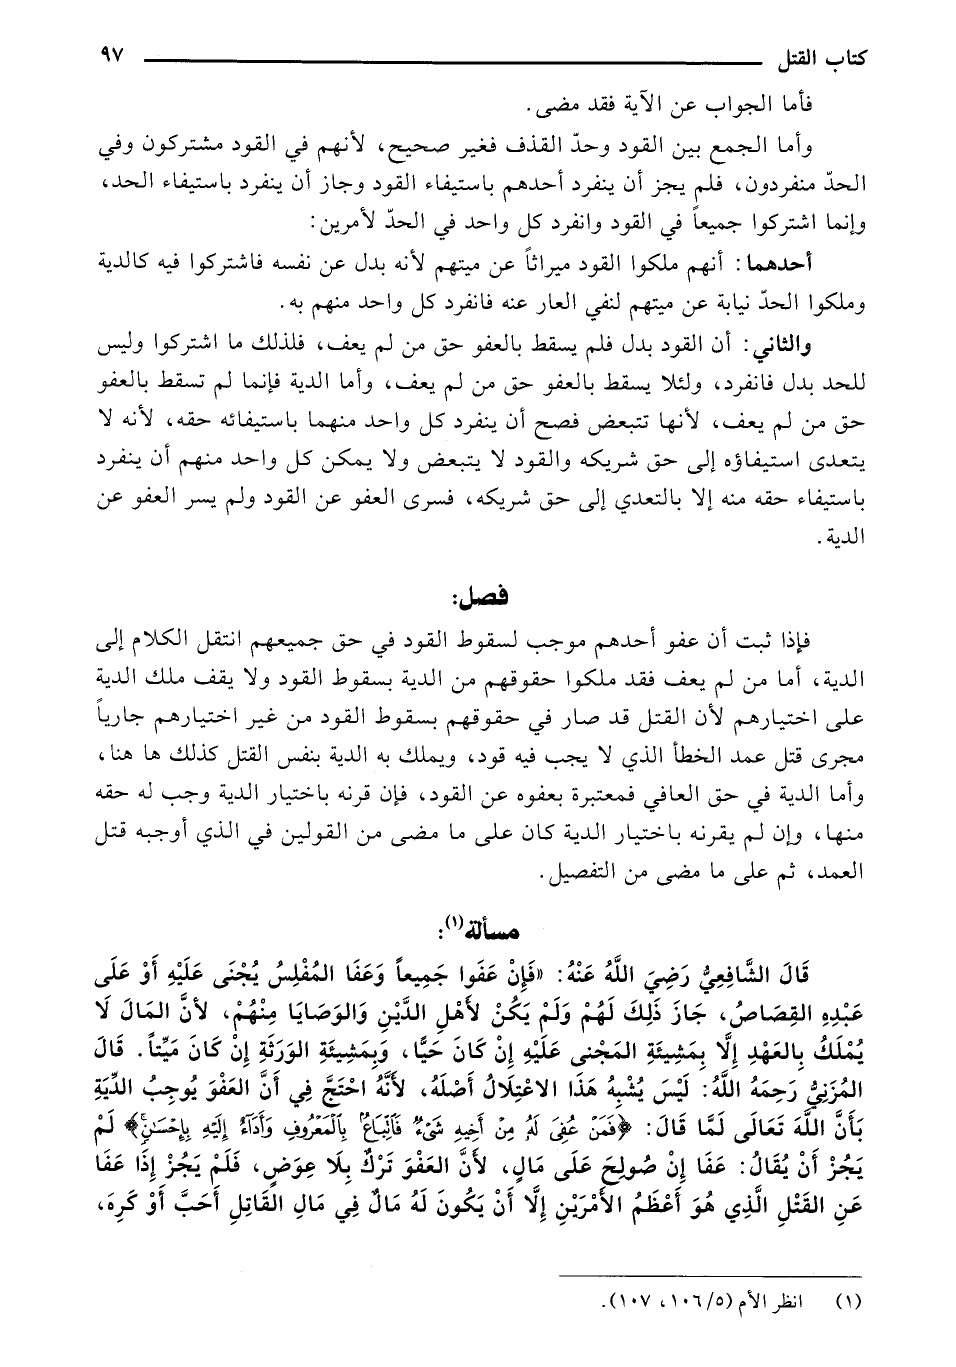 كتاب القتل ٩٧
فأما الجواب عن الآية فقد مضى.
وأما الجمع بين القود وحدّ القذف فغير صحيح، لأنهم في القود مشتركون وفي
الحدّ منفردون، فلم يجز أن ينفرد أحدهم باستيفاء القود وجاز أن ينفرد باستيفاء الحد،
وإنما اشتركوا جميعاً في القود وانفرد كل واحد في الحدّ لأمرين:
أحدهما: أنهم ملكوا القود ميراثاً عن ميتهم لأنه بدل عن نفسه فاشتركوا فيه كالدية
وملكوا الحدّ نيابة عن ميتهم لنفي العار عنه فانفرد كل واحد منهم به.
والثاني: أن القود بدل فلم يسقط بالعفو حق من لم يعف، فلذلك ما اشتركوا وليس
للحد بدل فانفرد، ولئلا يسقط بالعفو حق من لم يعف، وأما الدية فإنما لم تسقط بالعفو
حق من لم يعف، لأنها تتبعض فصح أن ينفرد كل واحد منهما باستيفائه حقه، لأنه لا
يتعدى استيفاؤه إلى حق شريكه والقود لا يتبعض ولا يمكن كل واحد منهم أن ينفرد
باستيفاء حقه منه إلا بالتعدي إلى حق شريكه، فسرى العفو عن القود ولم يسر العفو عن
الدية.
فصل:
فإذا ثبت أن عفو أحدهم موجب لسقوط القود في حق جميعهم انتقل الكلام إلى
الدية، أما من لم يعف فقد ملكوا حقوقهم من الدية بسقوط القود ولا يقف ملك الدية
على اختيارهم لأن القتل قد صار في حقوقهم بسقوط القود من غير اختيارهم جارياً
مجرى قتل عمد الخطأ الذي لا يجب فيه قود، ويملك به الدية بنفس القتل كذلك ها هنا،
وأما الدية في حق العافي فمعتبرة بعفوه عن القود، فإن قرنه باختيار الدية وجب له حقه
منها، وإن لم يقرنه باختيار الدية كان على ما مضى من القولين في الذي أوجبه قتل
العمد، ثم على ما مضى من التفصيل.
مسألة(١):
قَالَ الشَّافِعِيُّ رَضِيَ اللَّهُ عَنْهُ: «فَإِنْ عَفَوا جَمِيعاً وَعَفَا المُفْلِسُ يُجْنَى عَلَيْهِ أَوْ عَلَى
عَبْدِهِ القِصَاصُ، جَازَ ذَلِكَ لَهُمْ وَلَمْ يَكُنْ لأَهْلِ الدَّيْنِ وَالوَصَايَا مِنْهُمْ، لأنَّ المَالَ لَا
يُمْلَكُ بِالعَهْدِ إلَّا بِمَشِيئَةِ المَجْنى عَلَيْهِ إِنْ كَانَ حَيًّا، وَبِمَشِيئَةِ الوَرَثَةِ إِنْ كَانَ مَيِّتاً. قَالَ
المُزَنِيُّ رَحِمَهُ اللَّهُ: لَيْسَ يُشْبِهُ هَذَا الاعْتِلَالُ أَصْلَهُ، لأَنَّهُ احْتَجَّ فِي أَنَّ العَفْوَ يُوجِبُ الدِّيَةِ
بِأَنَّ اللَّهَ تَعَالَى لَمَّا قَالَ: ﴿فَمَنْ عُفِيَ لَهُ مِنْ أَخِيهِ شَيْءٌ فَاتِّبَاعٌ بِالْمَعْرُوفِ وَأَدَاءٌ إِلَيْهِ بِإِحْسَانٍ﴾ لَمْ
يَجُزْ أَنْ يُقَالُ: عَفَا إِنْ صُولِحَ عَلَى مَالٍ، لأَنَّ العَفْوَ تَرْكٌ بِلَا عِوَضٍ، فَلَمْ يَجُزْ إذَا عَفَا
عَنِ القَتْلِ الَّذِي هُوَ أَعْظَمُ الأَمْرَيْنِ إلَّا أَنْ يَكُونَ لَهُ مَالٌ فِي مَالِ القَاتِلِ أَحَبَّ أَوْ كَرِهَ،
(١) انظر الأم (١٠٦/٥، ١٠٧).